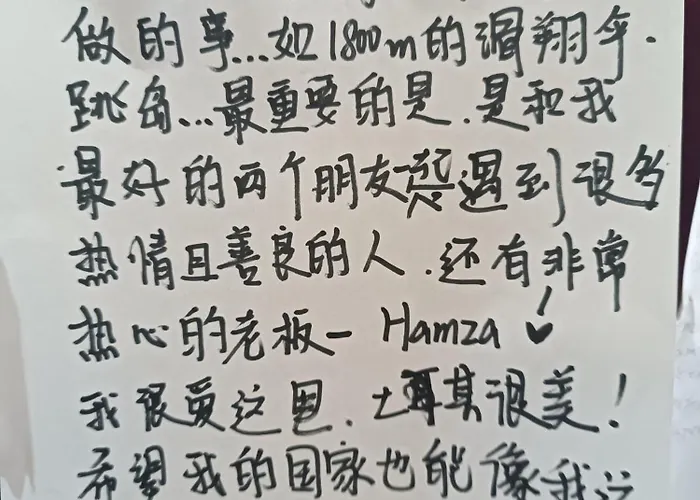 做的事...如1800m的滑翔伞.
跳岛...最重要的是.是和我
最好的两个朋友一起遇到很多
热情且善良的人.还有非常
热心的老板- Hamza ♥
我很爱这里.土耳其很美!
希望我的国家也能像我